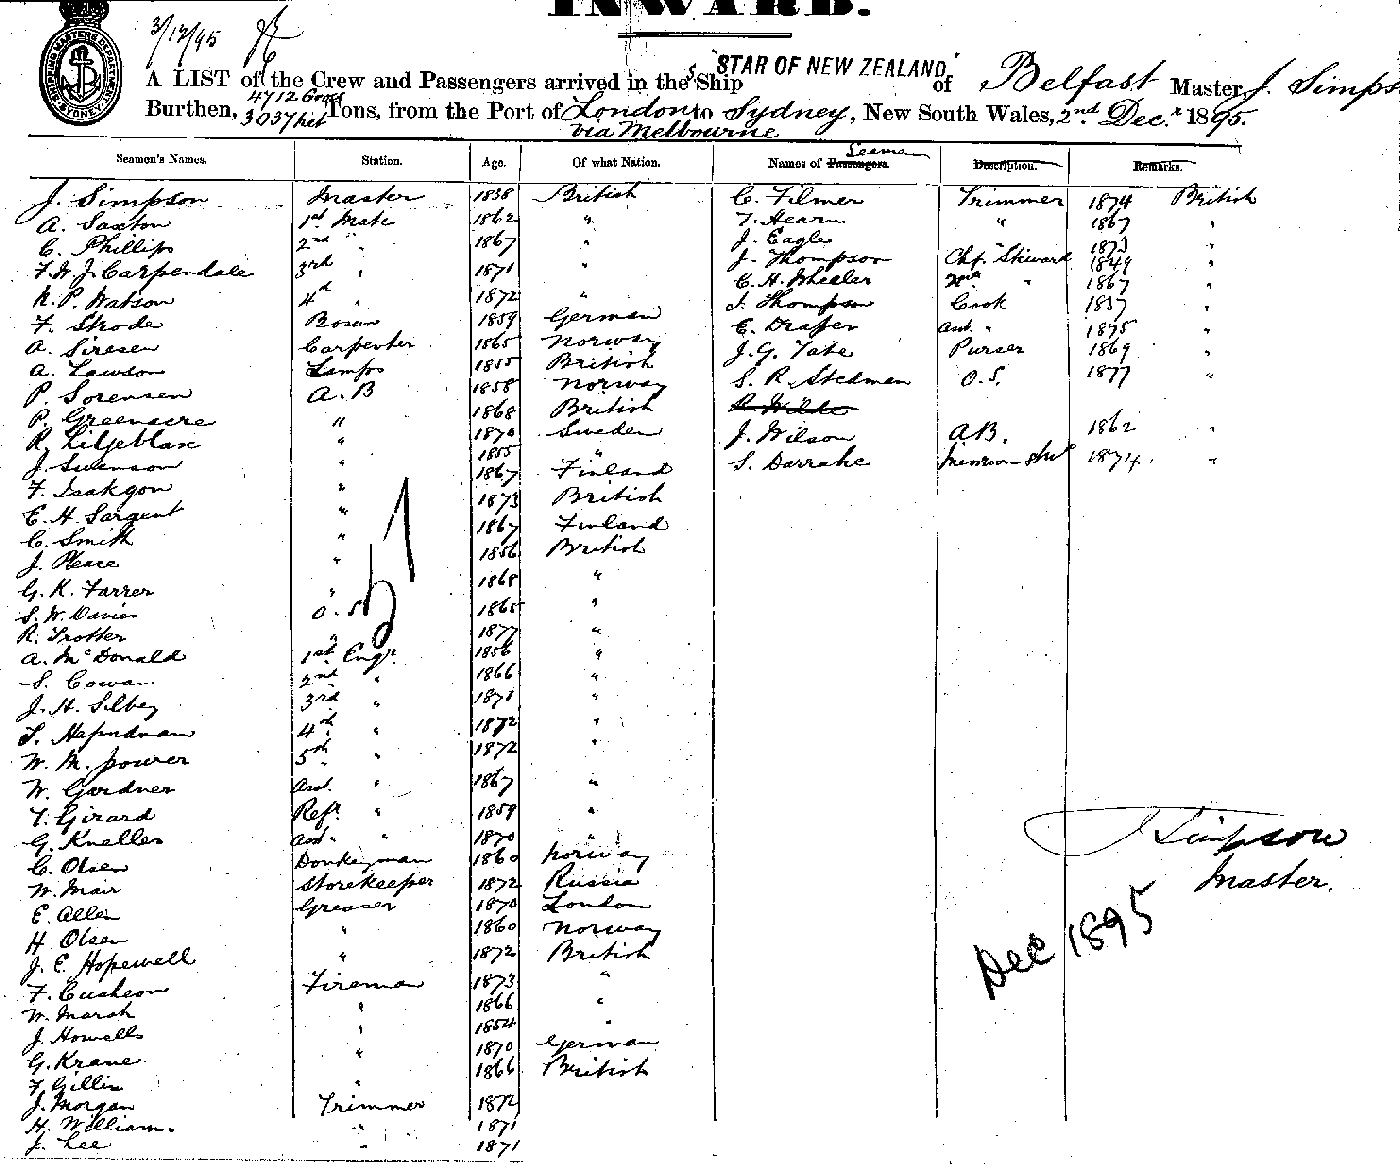 INWARD.
3/12/95
A LIST of the Crew and Passengers arrived in the S Ship "STAR OF NEW ZEALAND" of Belfast Master, J. Simps
Burthen, 4712 Gross 3037 net Tons, from the Port of London to Sydney, New South Wales, 2nd Decr 1895.
via Melbourne
Seamen's Names. Station. Age. Of what Nation. Names of Passengers. Seamen Description. Remarks.
J. Simpson Master 1838 British C. Filmer Trimmer 1874 British
A. Saxton 1st Mate 1862 " T. Hearn " 1867 "
C. Phillips 2nd " 1867 " J. Eagle 1873
F. W. J. Carpendale 3rd " 1871 " J. Thompson Chf. Steward 1849 "
R. P. Watson 4th " 1872 " C. H. Wheeler 2nd " 1867 "
F. Strode Bosun 1859 German J. Thompson Cook 1837 "
A. Siresen Carpenter 1865 Norway E. Draper Asst. " 1875 "
A. Lawson Lamps 1855 British J. G. Tate Purser 1869 "
P. Sorensen A. B 1858 Norway S. R. Stedman O. S. 1877 "
P. Greenacre " 1868 British
R. Liljeblad " 1870 Sweden J. Wilson A.B. 1862 "
J. Swenson " 1855 " S. Darrake 1874 "
F. Isakson " 1867 Finland
E. H. Sargent " 1873 British
C. Smith " 1867 Finland
J. Pleace " 1856 British
G. K. Farrer " 1868 "
S. W. Davies O. S. 1865 "
R. Trotter " 1877 "
A. McDonald 1st Engr. 1856 "
S. Cowan 2nd " 1866 "
J. H. Silbey 3rd " 1871 "
S. 4th " 1872 "
W. M. Power 5th " 1872 "
W. Gardner Asst. " 1867 "
T. Girard Refr. " 1859 "
G. Kneller Asst. " 1870 "
C. Olsen Donkeyman 1860 Norway
W. Mair Storekeeper 1872 Russia
E. Allen Greaser 1870 London
H. Olsen " 1860 Norway
J. E. Hopewell " 1872 British
F. Cusheon Fireman 1873 "
W. Marsh " 1866 "
J. Howells " 1854 "
G. Krane " 1870 German
F. Gillis " 1866 British
J. Morgan Trimmer 1872
H. William. " 1871
J. Lee " 1871
J Simpson
Master.
Dec 1895